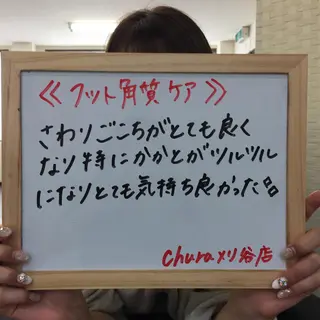 《フット角質ケア》
さわりごこちがとても良く
なり特にかかとがツルツル
になりとても気持ち良かった
chura メリ谷店